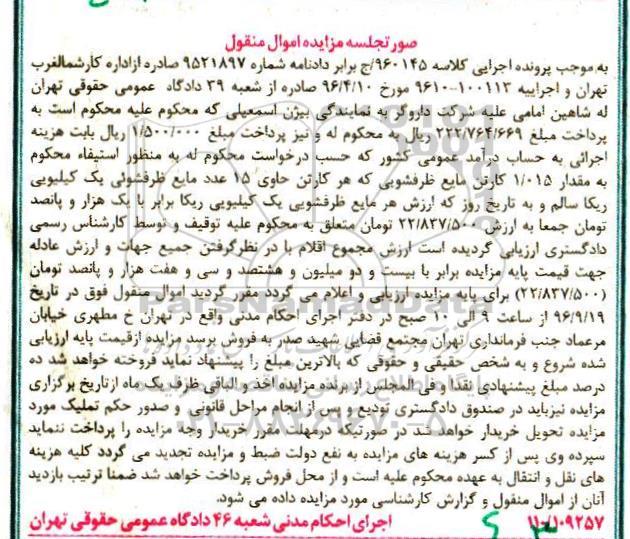 صورتجلسه مزایده اموال منقول
به موجب پرونده اجرایی کلاسه ۹۶۰۱۴۵/ج برابر دادنامه شماره ۹۵۲۱۸۹۷ صادره ازاداره کارشمالغرب
تهران و اجراییه ۱۰۰۱۱۳-۹۶۱۰ مورخ ۹۶/۴/۱۰ صادره از شعبه ۳۹ دادگاه عمومی حقوقی تهران
له شاهین امامی علیه شرکت داروگر به نمایندگی بیژن اسمعیلی که محکوم علیه محکوم است به
پرداخت مبلغ ۲۲۲/۷۶۴/۶۶۹ ریال به محکوم له و نیز پرداخت مبلغ ۱/۵۰۰/۰۰۰ ریال بابت هزینه
اجرائی به حساب درآمد عمومی کشور که حسب درخواست محکوم له به منظور استیفاء محکوم
به مقدار ۱/۰۱۵ کارتن مایع ظرفشویی که هر کارتن حاوی ۱۵ عدد مایع ظرفشوئی یک کیلیویی
ریکا سالم و به تاریخ روز که ارزش هر مایع ظرفشویی یک کیلیویی ریکا برابر با یک هزار و پانصد
تومان جمعا به ارزش ۲۲/۸۳۷/۵۰۰ تومان متعلق به محکوم علیه توقیف و توسط کارشناس رسمی
دادگستری ارزیابی گردیده است ارزش مجموع اقلام با در نظرگرفتن جمیع جهات و ارزش عادله
جهت قیمت پایه مزایده برابر با بیست و دو میلیون و هشتصد و سی و هفت هزار و پانصد تومان
(۲۲/۸۳۷/۵۰۰) برای پایه مزایده ارزیابی و اعلام می گردد مقرر گردید اموال منقول فوق در تاریخ
۹۶/۹/۱۹ از ساعت ۹ الی ۱۰ صبح در دفتر اجرای احکام مدنی واقع در تهران خ مطهری خیابان
میرعماد جنب فرمانداری تهران مجتمع قضایی شهید صدر به فروش برسد مزایده ازقیمت پایه ارزیابی
شده شروع و به شخص حقیقی و حقوقی که بالاترین مبلغ را پیشنهاد نماید فروخته خواهد شد ده
درصد مبلغ پیشنهادی نقدا و فی المجلس از برنده مزایده اخذ و الباقی ظرف یک ماه ازتاریخ برگزاری
مزایده نیزباید در صندوق دادگستری تودیع و پس از انجام مراحل قانونی و صدور حکم تملیک مورد
مزایده تحویل خریدار خواهد شد در صورتیکه درمهلت مقرر خریدار وجه مزایده را پرداخت ننماید
سپرده وی پس از کسر هزینه های مزایده به نفع دولت ضبط و مزایده تجدید می گردد کلیه هزینه
های نقل و انتقال به عهده محکوم علیه است و از محل فروش پرداخت خواهد شد ضمنا ترتیب بازدید
آنان از اموال منقول و گزارش کارشناسی مورد مزایده داده می شود.
۱۱۰/۱۰۹۲۵۷ اجرای احکام مدنی شعبه ۴۶ دادگاه عمومی حقوقی تهران